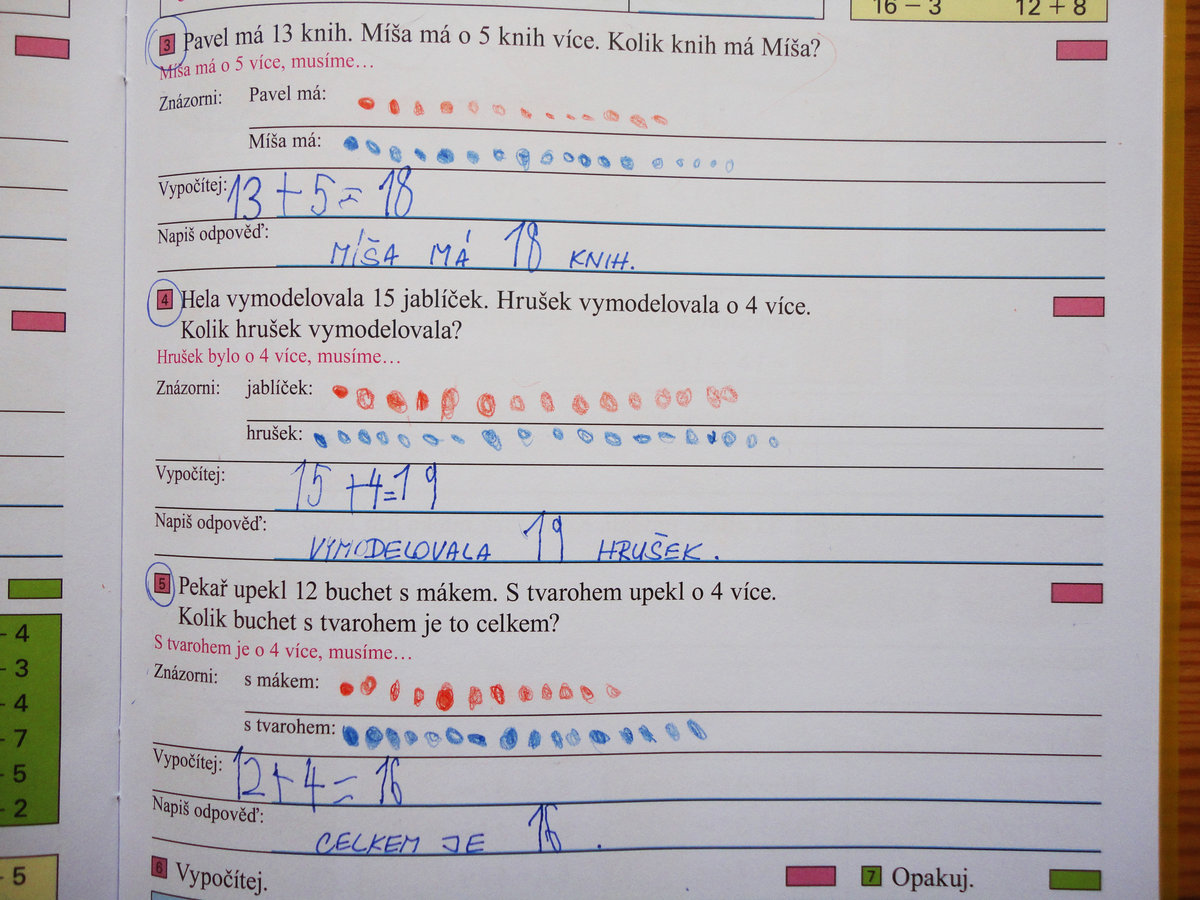 16 – 3 12 + 8
3 Pavel má 13 knih. Míša má o 5 knih více. Kolik knih má Míša?
Míša má o 5 více, musíme…
Znázorni: Pavel má:
Míša má:
Vypočítej: 13 + 5 = 18
Napiš odpověď: MÍŠA MÁ 18 KNIH.
4 Hela vymodelovala 15 jablíček. Hrušek vymodelovala o 4 více.
Kolik hrušek vymodelovala?
Hrušek bylo o 4 více, musíme…
Znázorni: jablíček:
hrušek:
Vypočítej: 15 + 4 = 19
Napiš odpověď: VYMODELOVALA 19 HRUŠEK.
5 Pekař upekl 12 buchet s mákem. S tvarohem upekl o 4 více.
Kolik buchet s tvarohem je to celkem?
S tvarohem je o 4 více, musíme…
Znázorni: s mákem:
s tvarohem:
Vypočítej: 12 + 4 = 16
Napiš odpověď: CELKEM JE 16 .
6 Vypočítej. 7 Opakuj.
– 4
– 3
– 4
– 7
– 5
– 2
– 5